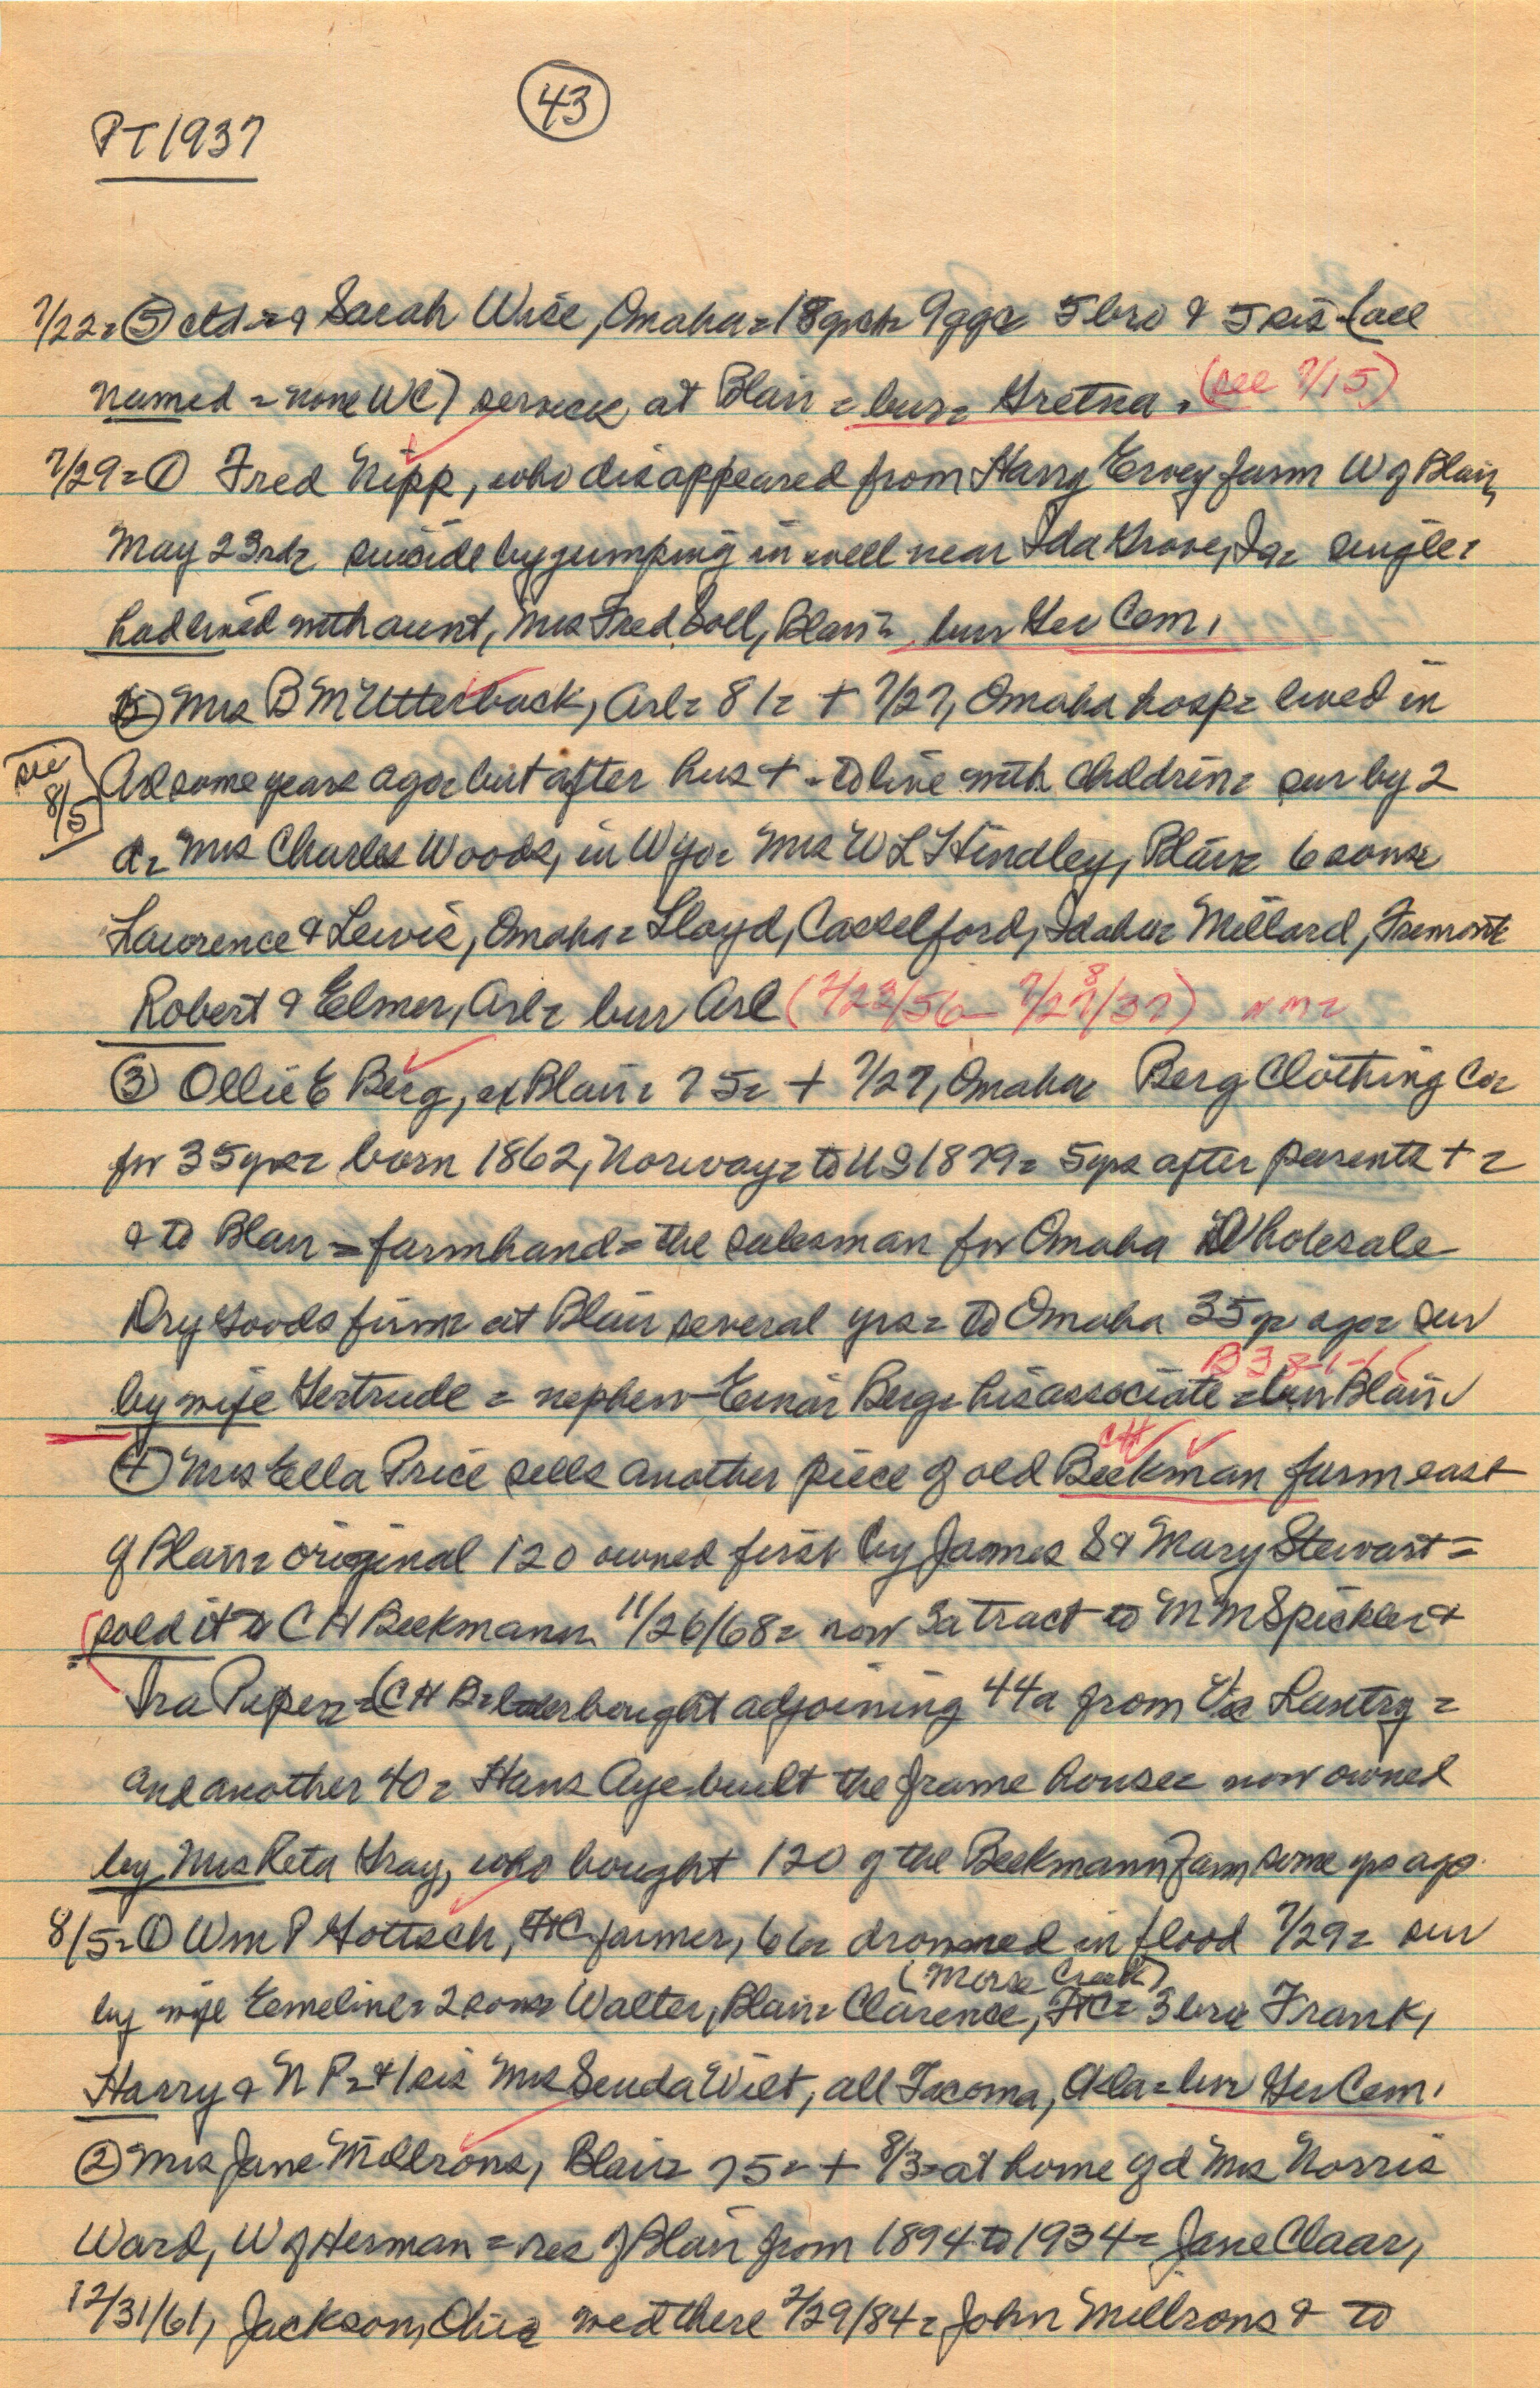 43
PT 1937
7/22 = ⑤ ctd = & Sarah Wise, Omaha = 18 grch = 9 ggc 5 bro & 5 sis (all
named = none WC) service at Blair = bur = Gretna. (see 7/15)
7/29 = ① Fred Nipp, who disappeared from Harry Ervey farm W of Blair,
May 23rd = suicide by jumping in well near Ida Grove, Ia = single =
had lived with aunt, Mrs Fred Soll, Blair = bur Her Cem.
Mrs B M Utterback, Arl = 81 = + 7/27, Omaha hosp = lived in
see 8/5
Arl some years ago = but after hus + = to live with children = sur by 2
d = Mrs Charles Woods, in Wyo = Mrs W L Hindley, Blair = 6 sons =
Lawrence & Lewis, Omaha = Lloyd, Casselford, Idaho = Millard, Fremont
Robert & Elmer, Arl = bur Arl (2/23/56 - 7/27/37) 8
③ Ollie E Berg, ex Blair = 75 = + 7/27, Omaha = Berg Clothing Co =
for 35 yrs = born 1862, Norway = to US 1879 = 5 yrs after parents + =
& to Blair = farmhand = the salesman for Omaha Wholesale
Dry Goods firm = at Blair several yrs = to Omaha 35 yr ago = sur
by wife Gertrude = nephew - Einar Berg = his associate = bur Blair
④ Mrs Ella Price sells another piece of old Beekman farm east
CH
of Blair = original 120 owned first by James S & Mary Stewart =
sold it to C H Beekmann 11/26/68 = now 3a tract to M M Spickler &
Ira Piper = (C H B = later bought adjoining 44a from Lantry =
and another 40 = Hans Aye built the frame house = now owned
by Mrs Reta Gray, who bought 120 of the Beekmann farm some yrs ago.
8/5 = ① Wm P Gottsch, FtC farmer, 66 = drowned in flood 7/29 = sur
(Morse Creek)
by wife Emeline = 2 sons = Walter, Blair = Clarence, FtC = 3 bro = Frank,
Harry & N P = & 1 sis Mrs Wiet, all Tacoma, = bur Her Cem.
② Mrs Jane Millrons, Blair = 75 = + 8/3 = at home of d Mrs Norris
Ward, W of Herman = res of Blair from 1894 to 1934 = Jane Claar,
12/31/61, Jackson, Ohio = wed there 2/29/84 = John Millrons & to